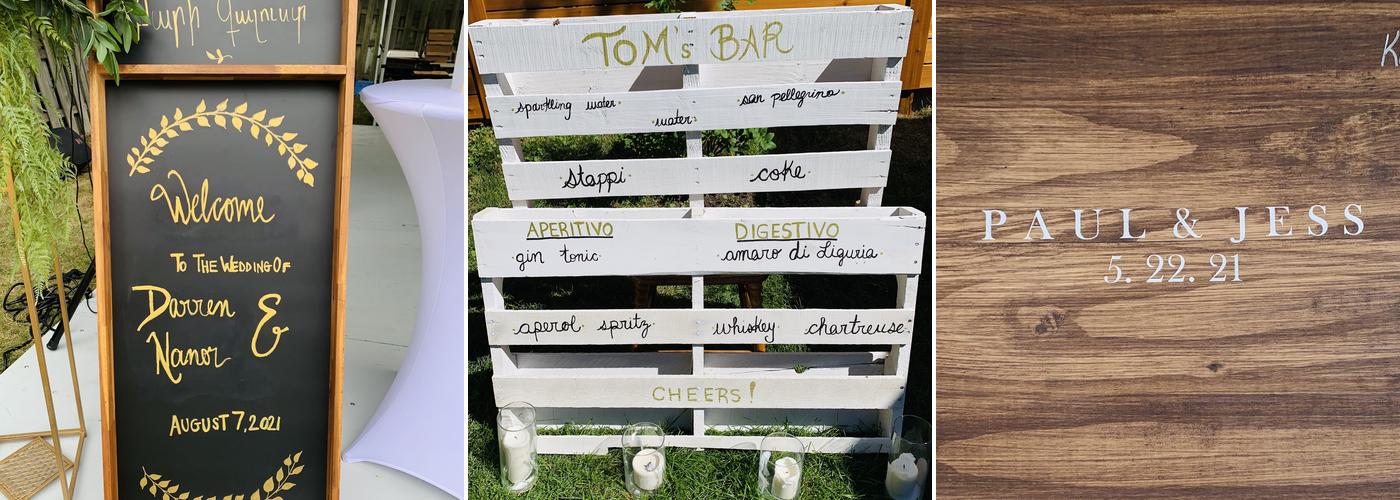 Welcome
To The Wedding Of
Darren &
Nanor
August 7, 2021
TOM's BAR
sparkling water
san pellegrino
water
stappi
coke
APERITIVO
DIGESTIVO
gin tonic
amaro di Liguria
aperol spritz
whiskey
chartreuse
CHEERS!
PAUL & JESS
5. 22. 21